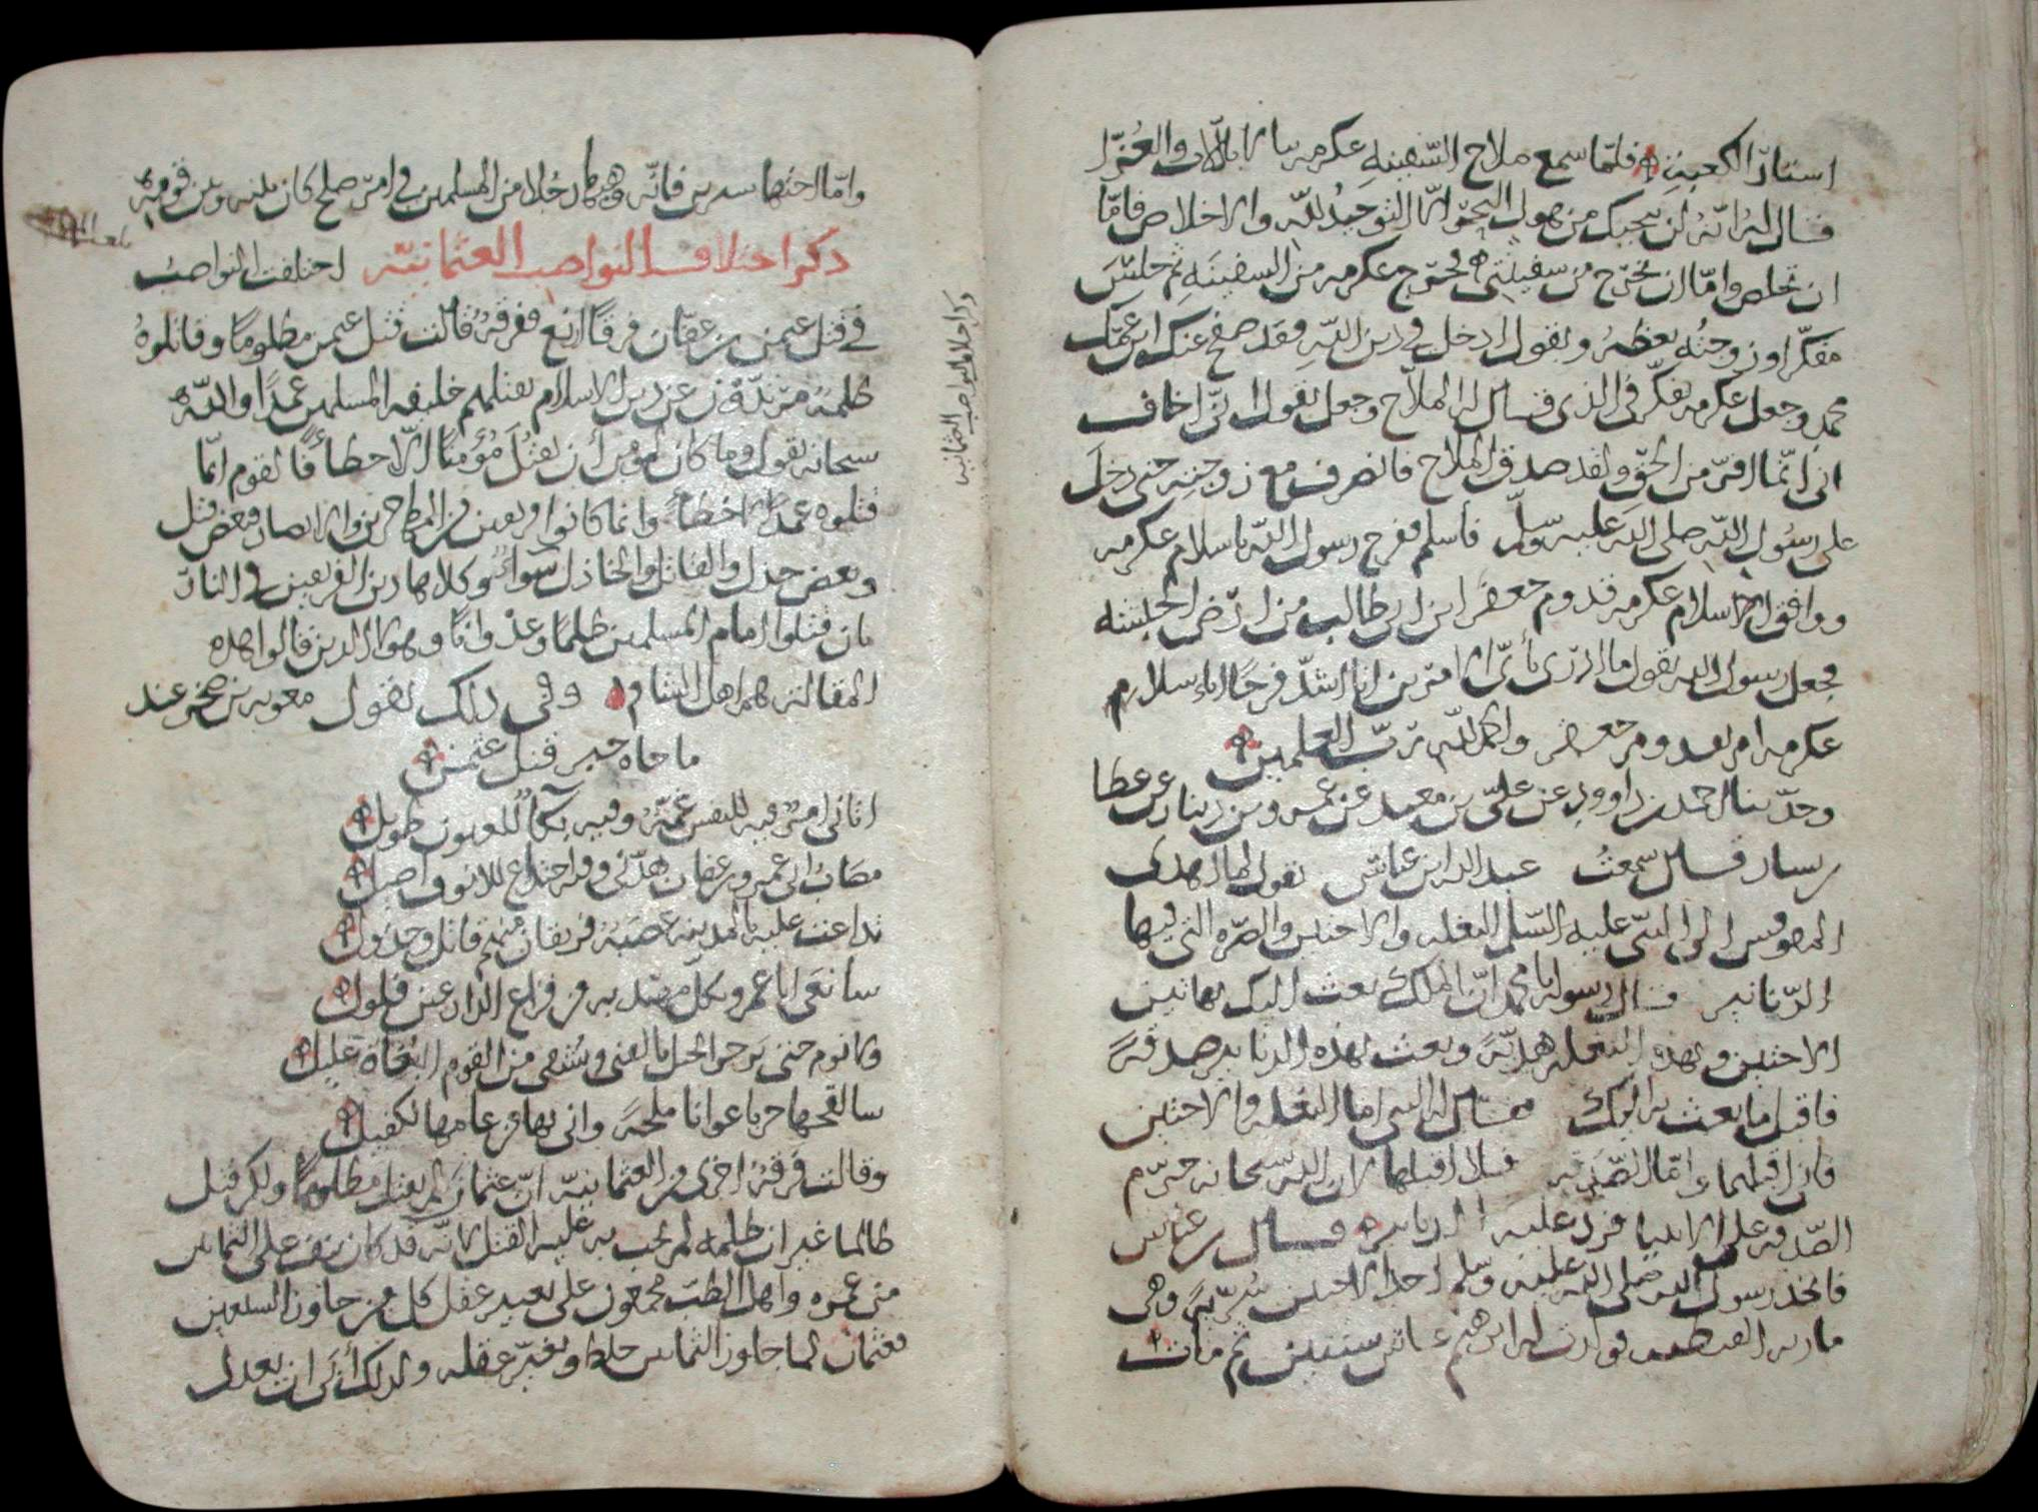 استار الكعبة فلما سمع ملاح السفينة عكرمه ينادي باللات والعزا
فقال له انه لن ينجيك من هول البحر الا التوحيد لله والاخلاص فاما
ان تخلص واما ان تخرج من سفينتي فخرج عكرمه من السفينة ثم جلس
مفكرا وزوجته تعظه وتقول ادخل في دين الله فقد صفح عنك ابن عمك
محمد وجعل عكرمه يفكر في الذي قال له الملاح وجعل يقول اني اخاف
اني انما افر من الحق ولقد صدق الملاح فانصرف مع زوجته حتى دخل
على رسول الله صلى الله عليه وسلم فاسلم ففرح رسول الله باسلام عكرمه
ووافق اسلام عكرمه قدوم جعفر ابن ابي طالب من ارض الحبشه
فجعل رسول الله يقول ما ادري باي الامرين انا اشد فرحا اباسلام
عكرمه ام بقدوم جعفر والحمد لله رب العلمين
وحدثنا احمد بن داوود عن علي بن معبد عن عمرو بن دينار عن عطا
بن يسار قال سمعت عبد الله ابن عباس يقول لما اهدى
المقوقس الى النبي عليه السلم البغله والاختين والصره التي فيها
الدنانير قال رسوله يا محمد ان الملك بعث اليك بهاتين
الاختين وبهذه البغله هدية وبعث بهذه الدنانير صدقة
فاقبل ما بعث به اليك فقال له النبي اما البغله والاختين
فاني اقبلهما واما الصدقه فلا اقبلها لان الله سبحانه حرم
الصدقه على الانبيا فرد عليه الدنانير قال ابن عباس
فاتخذ رسول الله صلى الله عليه وسلم احدا الاختين سرية وهي
ماريه القبطيه فولدت له ابرهيم عاش سنتين ثم مات
واما اختها سيرين فانه وهبها رجلا من المسلمين في امر صلح كان بينه وبين قومه
ذكر اختلاف النواصب العثمانية اختلفت النواصب
في قتل عثمن بن عفان فرقا اربع ففرقة قالت قتل عثمن مظلوما وقاتلوه
ظلمة مرتدون عن دين الاسلام بقتلهم خليفه المسلمين عمدا والله
سبحانه يقول وما كان لمؤمن أن يقتل مؤمنا الا خطأ فالقوم انما
قتلوه عمدا لا خطأ وانما كانوا فريقين من المهاجرين والانصار فبعض قتل
وبعض خذل والقاتل والخاذل سواء وكلا هاذين الفريقين في النار
بان قتلوا امام المسلمين ظلما وعدوانا وهولا الذين قالوا هذه
المقالة هم اهل الشام وفي ذلك يقول معويه بن صخر عند
ما جاه خبر قتل عثمن
اتاني امر فيه للنفس غمة وفيه بكآ للعيون طويل
مصاب ابي عمرو بن عفان هدني وفيه اجتداع للانوف اصيل
تداعت عليه بالمدينه عصبة فريقان منهم قاتل وخذول
سانعى ابا عمرو بكل مهند
سالقحها حربا عوانا ملحة واني بها من عامها لكفيل
وقالت فرقة اخرى من العثمانية ان عثمان لم يقتل مظلوما ولكن قتل
ظالما غير ان ظلمه لم يجب به عليه القتل لانه قد كان نيف على الثمانين
من عمره واهل الطب مجمعون على تغيير عقل كل من جاوز السبعين
فعثمان لما جاوز الثمانين خلط وتغير عقله ولذلك أبى ان يعدل
ذكر اختلاف النواصب العثمانيه